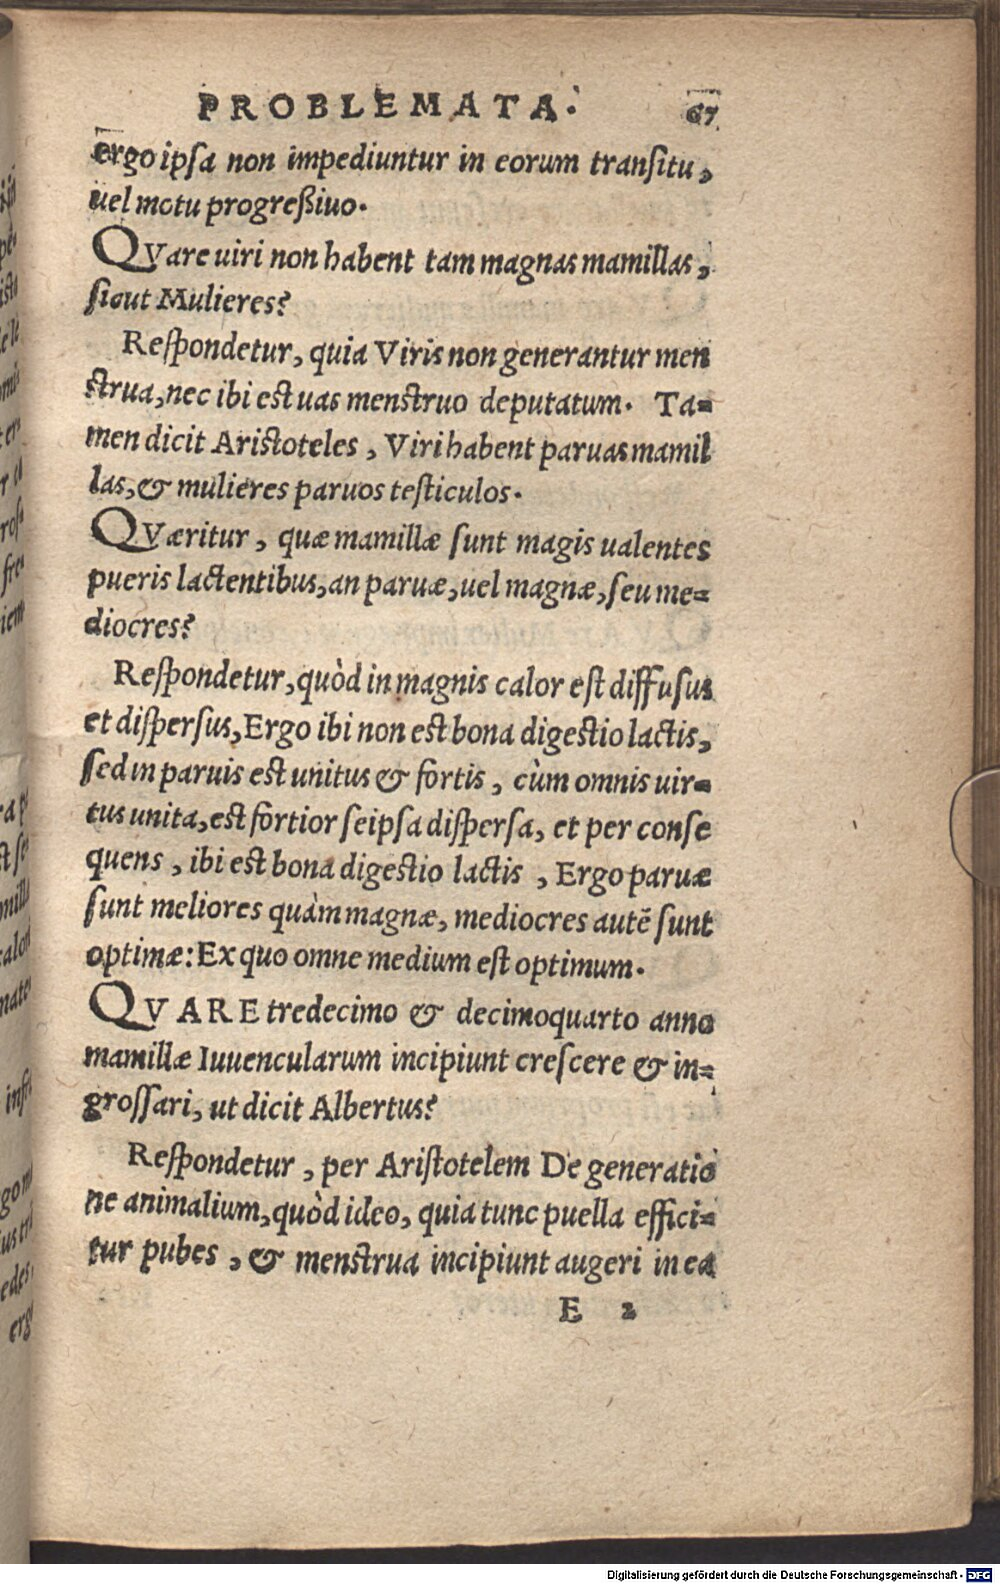 PROBLEMATA. 67
ergo ipsa non impediuntur in eorum transitu,
uel motu progreßiuo.
QVare uiri non habent tam magnas mamillas,
sicut Mulieres?
Respondetur, quia Viris non generantur men
strua, nec ibi est uas menstruo deputatum. Ta=
men dicit Aristoteles, Viri habent paruas mamil
las, & mulieres paruos testiculos.
QVæritur, quæ mamillæ sunt magis ualentes
pueris lactentibus, an paruæ, uel magnæ, seu me=
diocres?
Respondetur, quòd in magnis calor est diffusus
et dispersus, Ergo ibi non est bona digestio lactis,
sed in paruis est unitus & fortis, cùm omnis uir=
tus unita, est fortior seipsa dispersa, et per conse
quens, ibi est bona digestio lactis, Ergo paruæ
sunt meliores quàm magnæ, mediocres autē sunt
optimæ: Ex quo omne medium est optimum.
QVARE tredecimo & decimoquarto anno
mamillæ Iuuencularum incipiunt crescere & in=
grossari, ut dicit Albertus?
Respondetur, per Aristotelem De generatio
ne animalium, quòd ideo, quia tunc puella effici=
tur pubes, & menstrua incipiunt augeri in ea
E 2
Digitalisierung gefördert durch die Deutsche Forschungsgemeinschaft - DFG